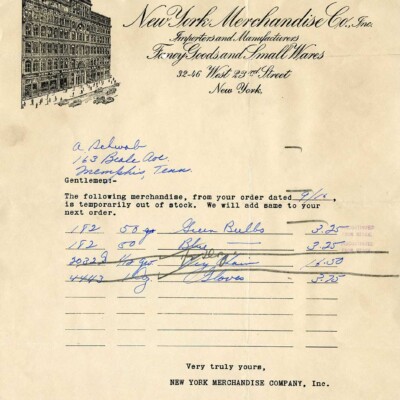 New York Merchandise Co., Inc.
Importers and Manufacturers
Fancy Goods and Small Wares
32-46 West 23rd Street
New York.
A Schwab
163 Beale Ave.
Memphis, Tenn.
Gentlemen:-
The following merchandise, from your order dated 9/16,
is temporarily out of stock. We will add same to your
next order.
182 50 Green Bulbs 3.25
182 50 Blue — 3.25
1/2 gro 16.50
4443 Gloves 3.75
Very truly yours,
NEW YORK MERCHANDISE COMPANY, Inc.